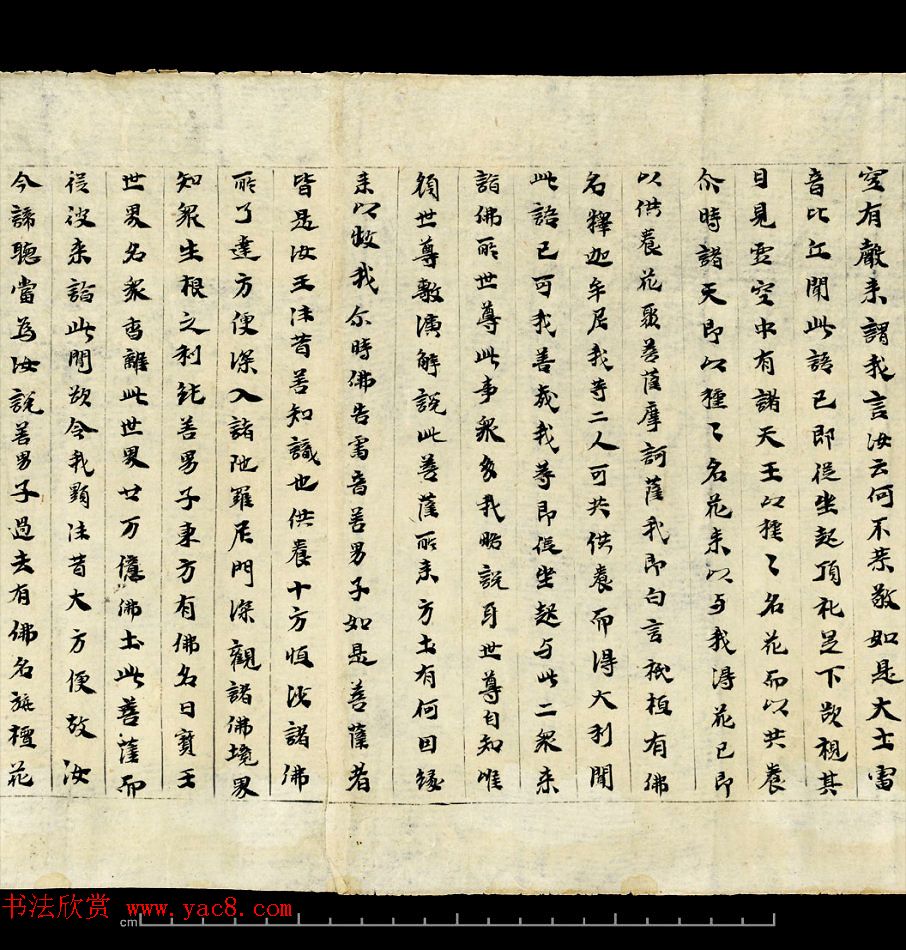 空有聲来謂我言汝云何不恭敬如是大士雷
音比丘聞此語已即從坐起頂礼足下欲視其
目見雲空中有諸天王以種々名花而以共養
尒時諸天即以種々名花来以与我淂花已即
以供養花聚菩薩摩訶薩我即白言祇桓有佛
名釋迦牟尼我等二人可共供養而得大利聞
此語已可我善哉我等即從坐起与此二衆来
詣佛所世尊此事衆多我略說耳世尊自知唯
領世尊敷演解說此菩薩所来方土有何因緣
来以救我尒時佛告雷音善男子如是菩薩者
皆是汝王法昔善知識也供養十方恒沙諸佛
所了達方便深入諸陁羅尼門深觀諸佛境界
知衆生根之利鈍善男子東方有佛名曰寶王
世界名衆香離此世界廿万億佛土此菩薩而
從彼来詣此間欲令我顯法昔大方便故汝
今諦聽當為汝說善男子過去有佛名旃檀花
书法欣赏 www.yac8.com
cm